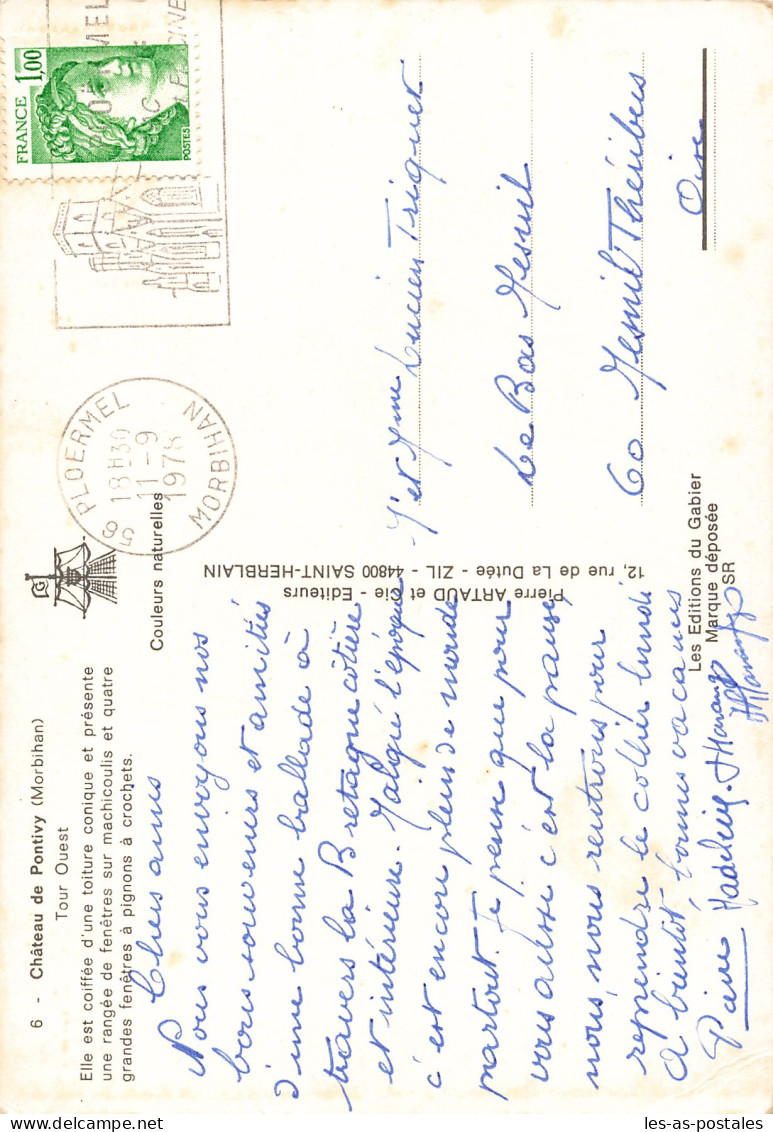 6 - Château de Pontivy (Morbihan)
Tour Ouest
Elle est coiffée d'une toiture conique et présente
une rangée de fenêtres sur machicoulis et quatre
grandes fenêtres à pignons à crochets.
Couleurs naturelles
Chers amis
Nous vous envoyons nos
bons souvenirs et amitiés
d'une bonne ballade à
travers la Bretagne côtière
et intérieure. Malgré l'époque
c'est encore pleins de monde
partout. Je pense que pour
vous aussi c'est la pause,
nous, nous rentrons pour
reprendre le collier lundi
A bientôt, bonnes vacances
Pierre ARTAUD et Cie - Editeurs
12, rue de La Dutée - ZIL - 44800 SAINT-HERBLAIN
Les Editions du Gabier
Marque déposée
SR
G
FRANCE
1,00
POSTES
56 PLOERMEL
18H30
11-9
1978
MORBIHAN
M et Mme Lucien Triquet
Le Bas Mesnil
60 Mesnil Théribus
Oise
les-as-postales
Delcampe.net